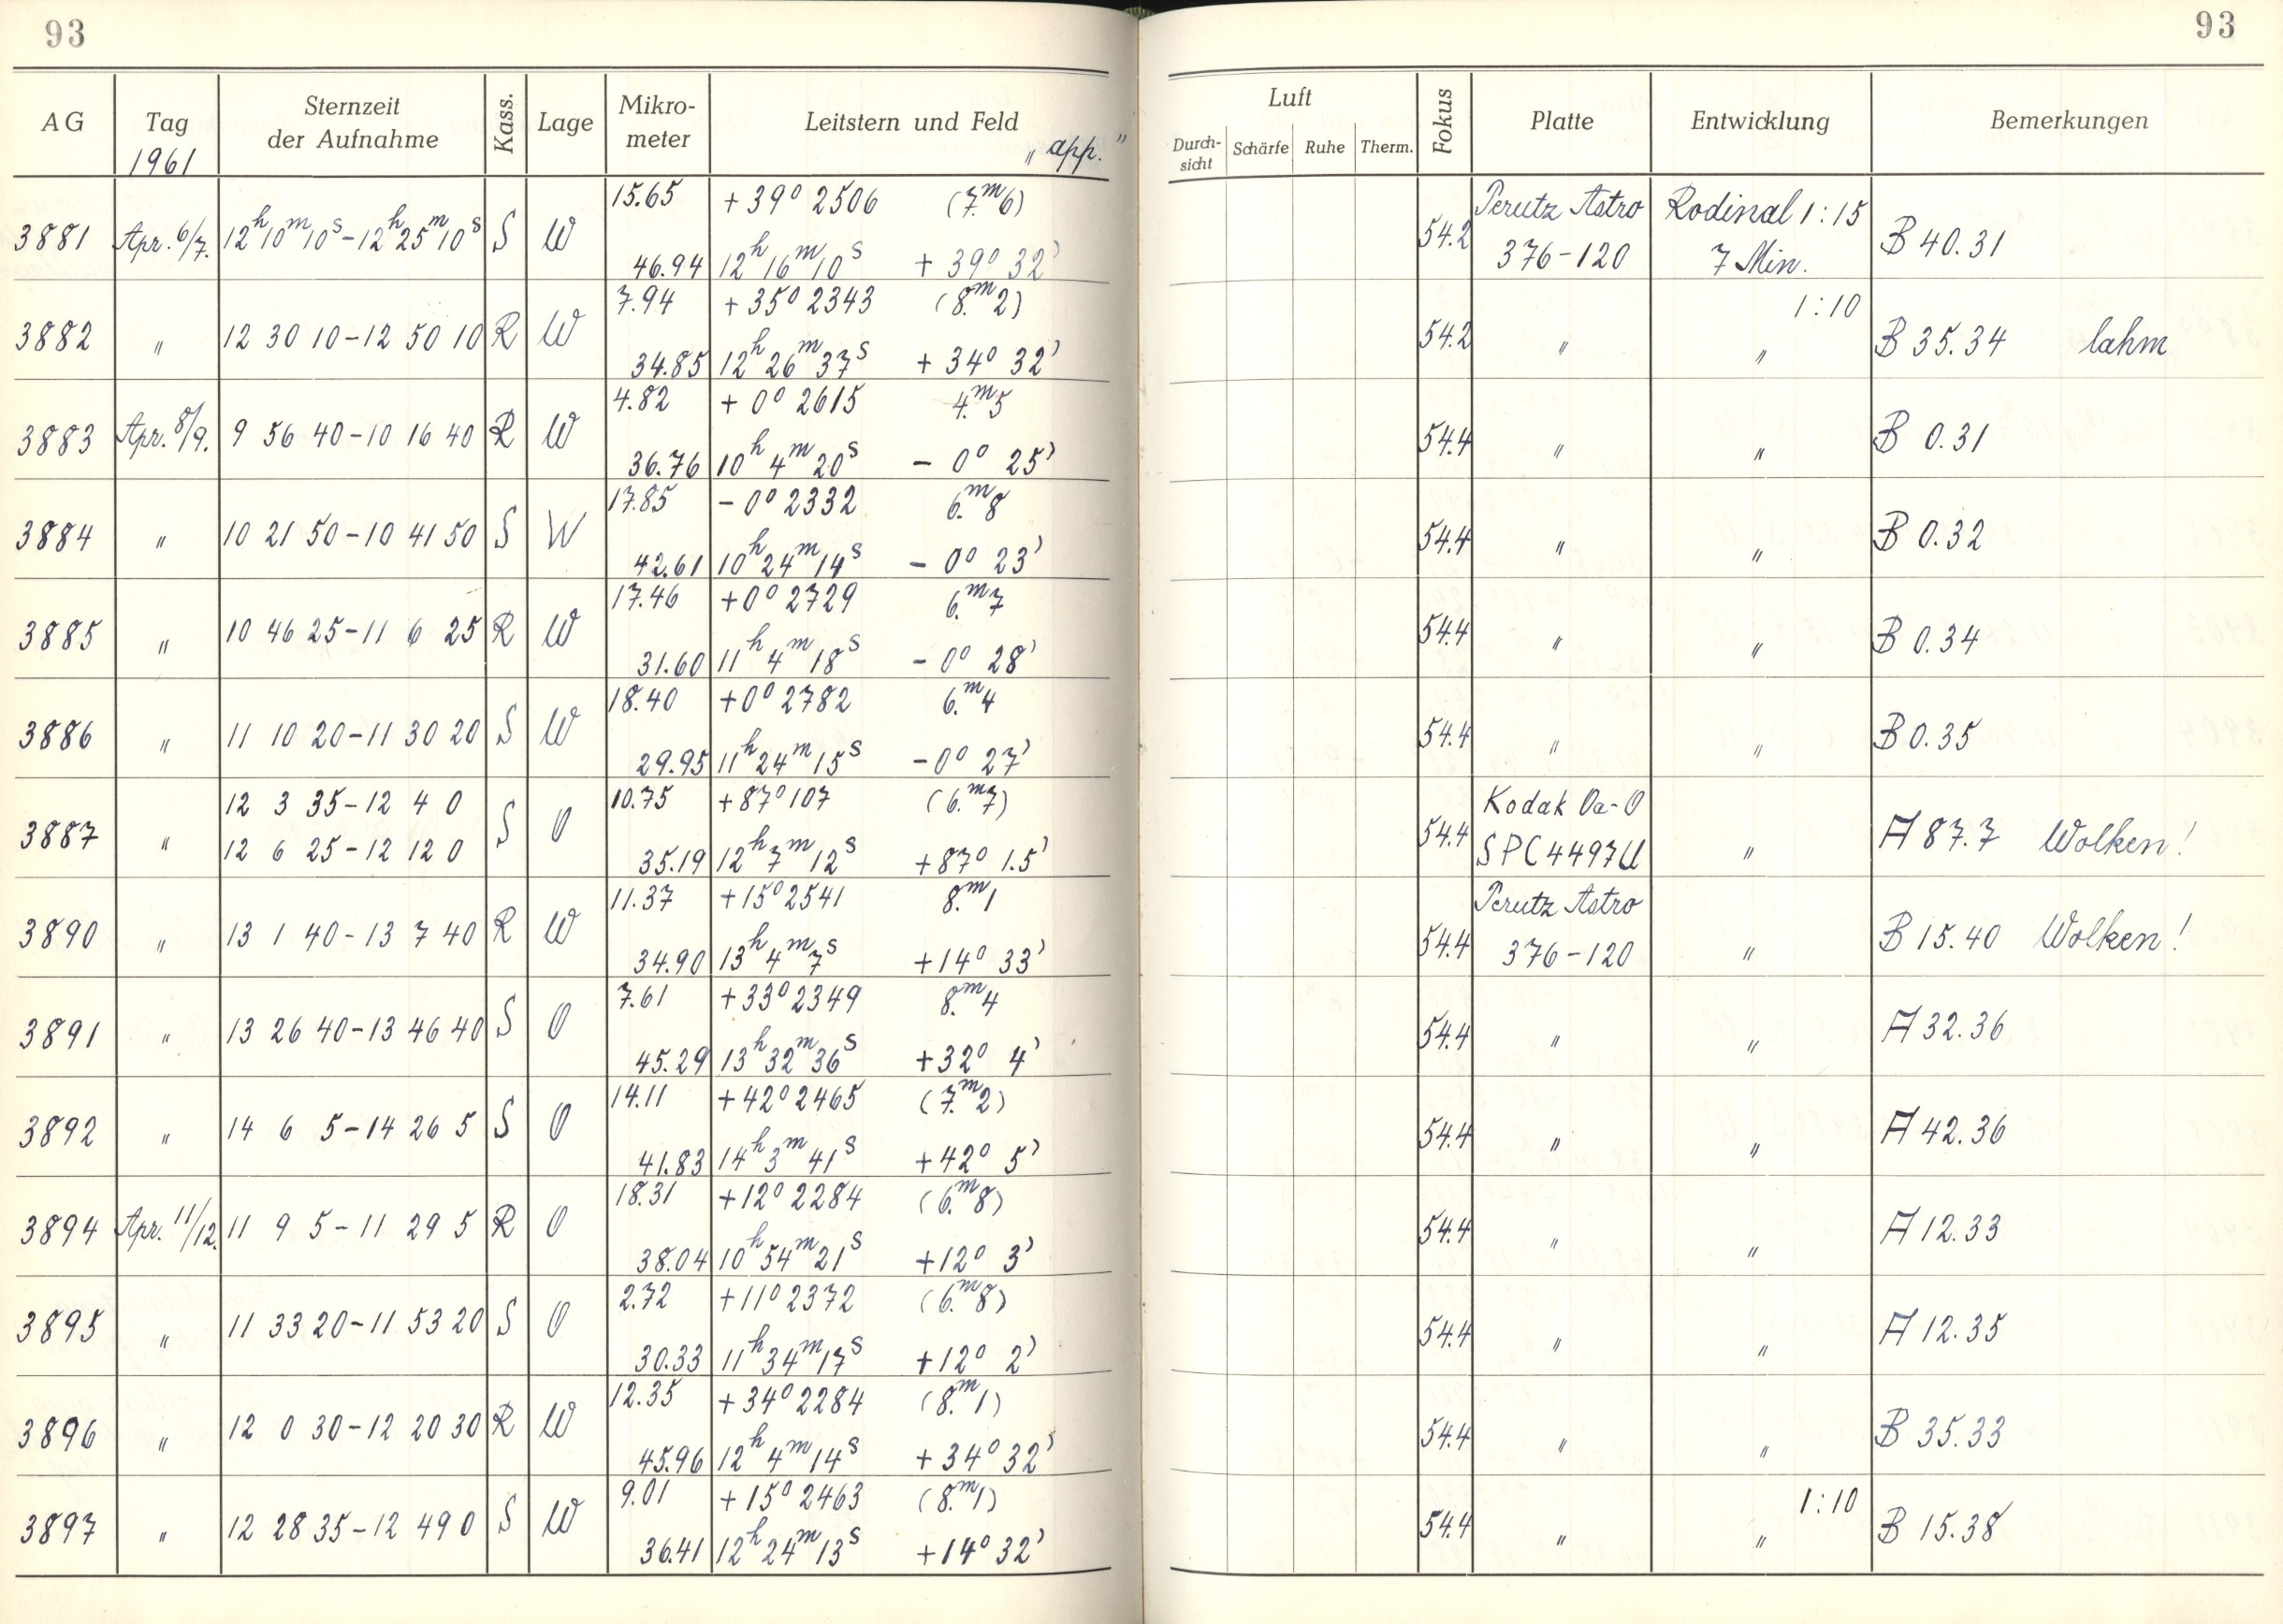 93
93
AG Tag Sternzeit der Aufnahme Kass. Lage Mikro-meter Leitstern und Feld „app.“ Luft Durch-sicht Schärfe Ruhe Therm. Fokus Platte Entwicklung Bemerkungen
1961
15.65 +39° 2506 (7.ᵐ6) Perutz Astro Rodinal 1:15
3881 Apr. 6/7. 12ʰ10ᵐ10ˢ-12ʰ25ᵐ10ˢ S W 54.2 376-120 7 Min. B 40.31
46.94 12ʰ16ᵐ10ˢ +39° 32'
7.94 +35° 2343 (8.ᵐ2) 1:10
3882 " 12 30 10-12 50 10 R W 54.2 " " B 35.34 lahm
34.85 12ʰ26ᵐ37ˢ +34° 32'
4.82 +0° 2615 4.ᵐ5
3883 Apr. 8/9. 9 56 40-10 16 40 R W 54.4 " " B 0.31
36.76 10ʰ4ᵐ20ˢ -0° 25'
17.85 -0° 2332 6.ᵐ8
3884 " 10 21 50-10 41 50 S W 54.4 " " B 0.32
42.61 10ʰ24ᵐ14ˢ -0° 23'
17.46 +0° 2729 6.ᵐ7
3885 " 10 46 25-11 6 25 R W 54.4 " " B 0.34
31.60 11ʰ4ᵐ18ˢ -0° 28'
18.40 +0° 2782 6.ᵐ4
3886 " 11 10 20-11 30 20 S W 54.4 " " B 0.35
29.95 11ʰ24ᵐ15ˢ -0° 27'
12 3 35-12 4 0 10.75 +87° 107 (6.ᵐ7) Kodak Oa-O
3887 " 12 6 25-12 12 0 S O 54.4 SPC4497U " A 87.7 Wolken!
35.19 12ʰ7ᵐ12ˢ +87° 1.5'
11.37 +15° 2541 8.ᵐ1 Perutz Astro
3890 " 13 1 40-13 7 40 R W 54.4 376-120 " B 15.40 Wolken!
34.90 13ʰ4ᵐ7ˢ +14° 33'
7.61 +33° 2349 8.ᵐ4
3891 " 13 26 40-13 46 40 S O 54.4 " " A 32.36
45.29 13ʰ32ᵐ36ˢ +32° 4'
14.11 +42° 2465 (7.ᵐ2)
3892 " 14 6 5-14 26 5 S O 54.4 " " A 42.36
41.83 14ʰ3ᵐ41ˢ +42° 5'
18.31 +12° 2284 (6.ᵐ8)
3894 Apr. 11/12. 11 9 5-11 29 5 R O 54.4 " " A 12.33
38.04 10ʰ54ᵐ21ˢ +12° 3'
2.72 +11° 2372 (6.ᵐ8)
3895 " 11 33 20-11 53 20 S O 54.4 " " A 12.35
30.33 11ʰ34ᵐ17ˢ +12° 2'
12.35 +34° 2284 (8.ᵐ1)
3896 " 12 0 30-12 20 30 R W 54.4 " " B 35.33
45.96 12ʰ4ᵐ14ˢ +34° 32'
9.01 +15° 2463 (8.ᵐ1) 1:10
3897 " 12 28 35-12 49 0 S W 54.4 " " B 15.38
36.41 12ʰ24ᵐ13ˢ +14° 32'